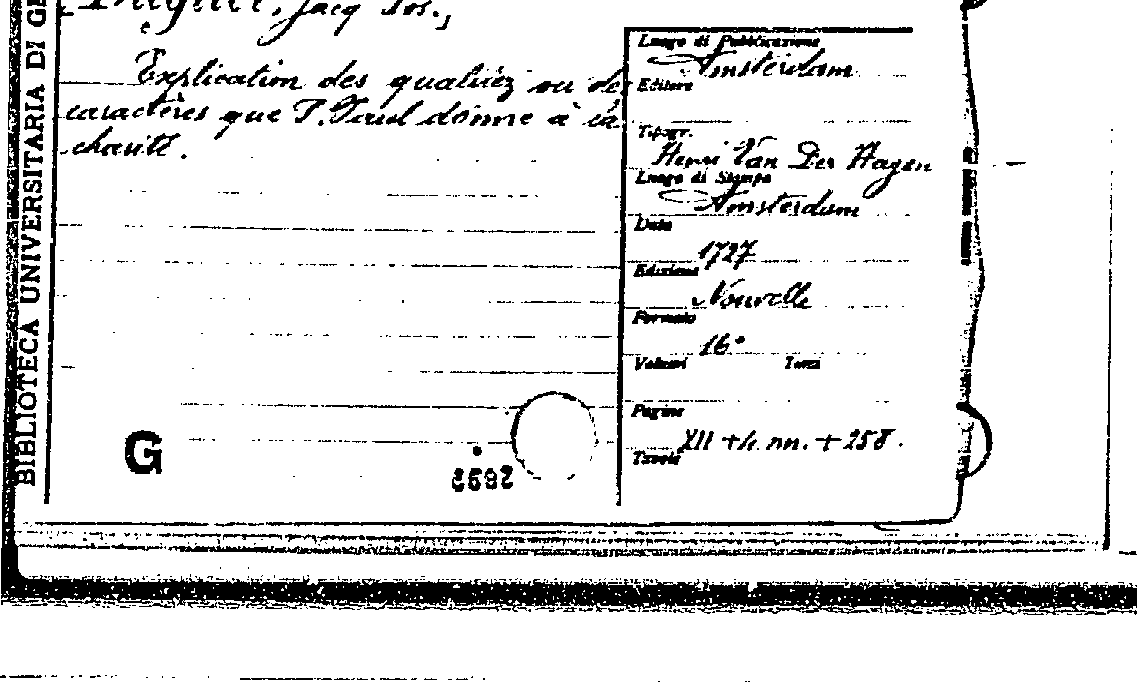 BIBLIOTECA UNIVERSITARIA DI GE
Duguet, Jacq Jos.,
Explication des qualitéz ou des
caractères que S. Paul donne à la
charité.
G
2692
Luogo di Pubblicazione
Amsterdam
Editore
Tipogr.
Henri Van Der Hagen
Luogo di Stampa
Amsterdam
Data
1727
Edizione
Nouvelle
Formato
16°
Volumi Tomi
Pagine
XII + 4. nn. + 258.
Tavole